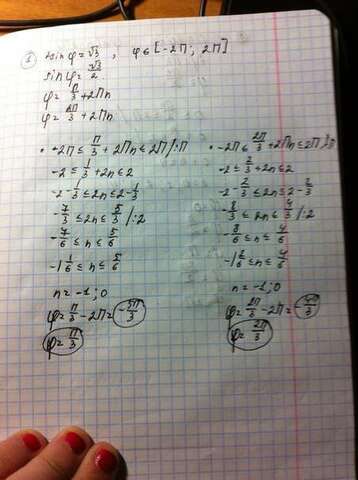 ① 2sin φ = √3 ; φ ∈ [-2π; 2π]
sin φ = √3/2
φ = π/3 + 2πn
φ = 2π/3 + 2πn
• -2π ≤ π/3 + 2πn ≤ 2π /:π
-2 ≤ 1/3 + 2n ≤ 2
-2 - 1/3 ≤ 2n ≤ 2 - 1/3
-7/3 ≤ 2n ≤ 5/3 /:2
-7/6 ≤ n ≤ 5/6
-1 1/6 ≤ n ≤ 5/6
n = -1; 0
φ = π/3 - 2π = -5π/3
φ = π/3
• -2π ≤ 2π/3 + 2πn ≤ 2π /:π
-2 ≤ 2/3 + 2n ≤ 2
-2 - 2/3 ≤ 2n ≤ 2 - 2/3
-8/3 ≤ 2n ≤ 4/3 /:2
-8/6 ≤ n ≤ 4/6
-1 2/6 ≤ n ≤ 4/6
n = -1; 0
φ = 2π/3 - 2π = -4π/3
φ = 2π/3